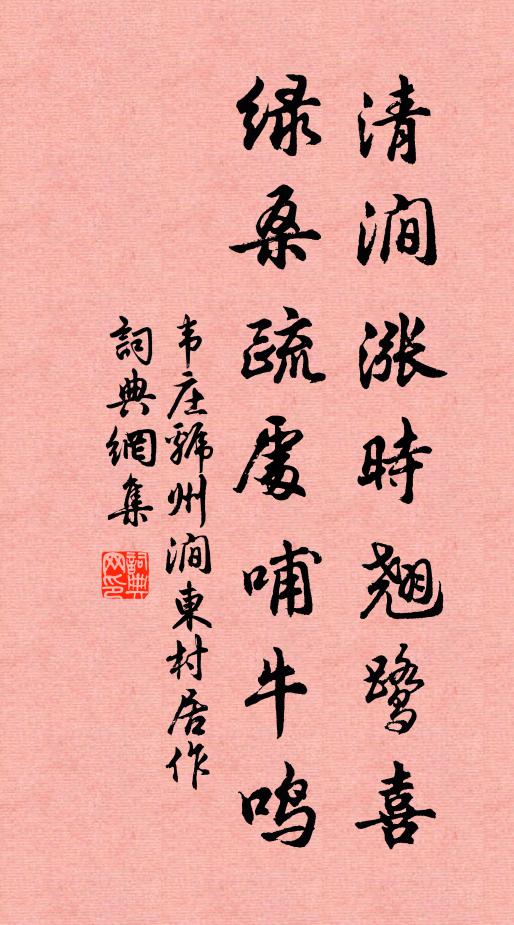 清涧漲時翘鹭喜
绿桑疏處哺牛鸣
韦庄虢州涧東村居作
詞典網集
詞典网印